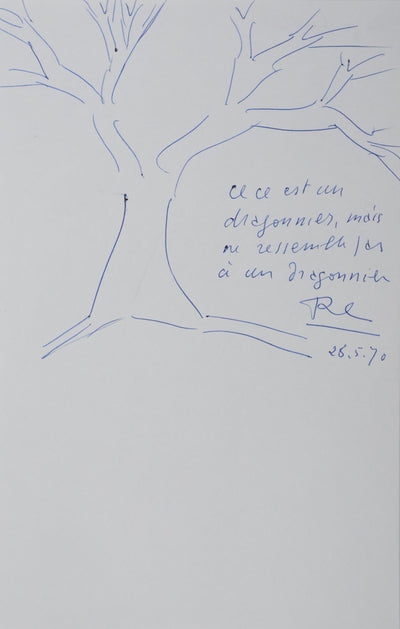 ce ce est un
dragonnier, mais
ne ressemble pas
à un dragonnier
RC
28.5.70